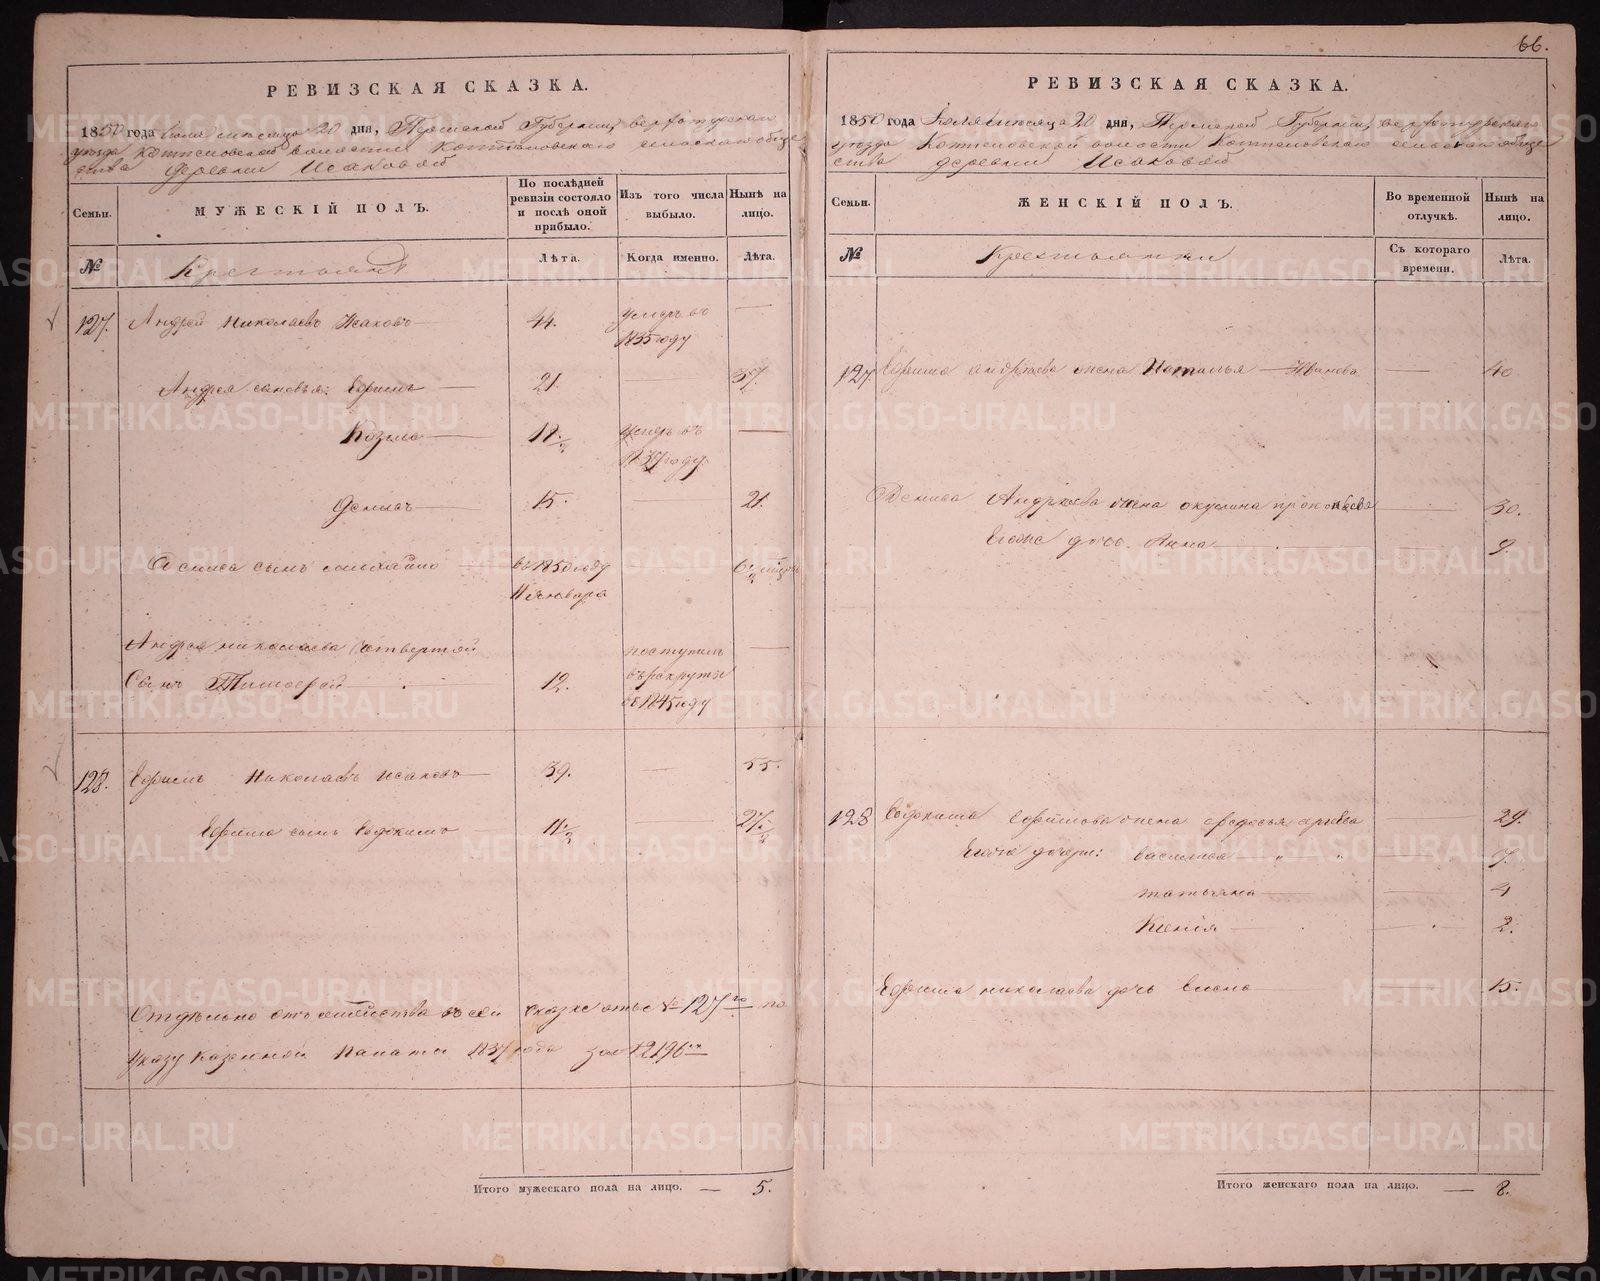 66.
РЕВИЗСКАЯ СКАЗКА.
1850 года июля месяца 20 дня, Пермской Губернии, верхотурскаго
уезда Коптеловской волости Коптеловскаго сельскаго обще
ства деревни Исаковой
Семьи. МУЖЕСКІЙ ПОЛЪ. По послѣдней ревизіи состояло и послѣ оной прибыло. Изъ того числа выбыло. Нынѣ на лицо.
№ Крестьяне Лѣта. Когда именно. Лѣта.
127. Андрей Николаевъ Исаковъ — 44. умеръ въ 1835 году —
Андрея сыновья: Ефимъ — 21. 37.
Козма — умеръ въ 1837 году. —
Денисъ — 15. — 21.
Дениса сынъ Михайло — въ 1850 году января
Андрея николаева четвертой
Сынъ Тимофей — 12. поступилъ въ рекруты въ 1845 году —
128. Ефимъ Николаевъ Исаковъ — 39. — 55.
Ефима сынъ Евдокимъ — 11½ — 27½
Отдѣльно отъ семейства въ сей сказке отъ № 127го по
Указу Казенной Палаты 1837 года за № 12196мъ
Итого мужескаго пола на лицо. — 5.
РЕВИЗСКАЯ СКАЗКА.
1850 года Июля месяца 20 дня, Пермской Губернии, верхотурскаго
уезда Коптеловской волости Коптеловскаго сельскаго обще
ства деревни Исаковой
Семьи. ЖЕНСКІЙ ПОЛЪ. Во временной отлучкѣ. Нынѣ на лицо.
№ Крестьянки Съ котораго времени. Лѣта.
127. Ефима андреева жена Наталья — Иванова — 40
Дениса Андреева жена окулина прокопьева — 30.
Егоже дочь Анна — 9.
128 Евдокима Ефимова жена федосья — 29.
Егоже дочери: василиса „ „ — 7.
татьяна — 4
Ксенія — 2.
Ефима николаева дочь — 15.
Итого женскаго пола на лицо. — 8.
METRIKI.GASO-URAL.RU